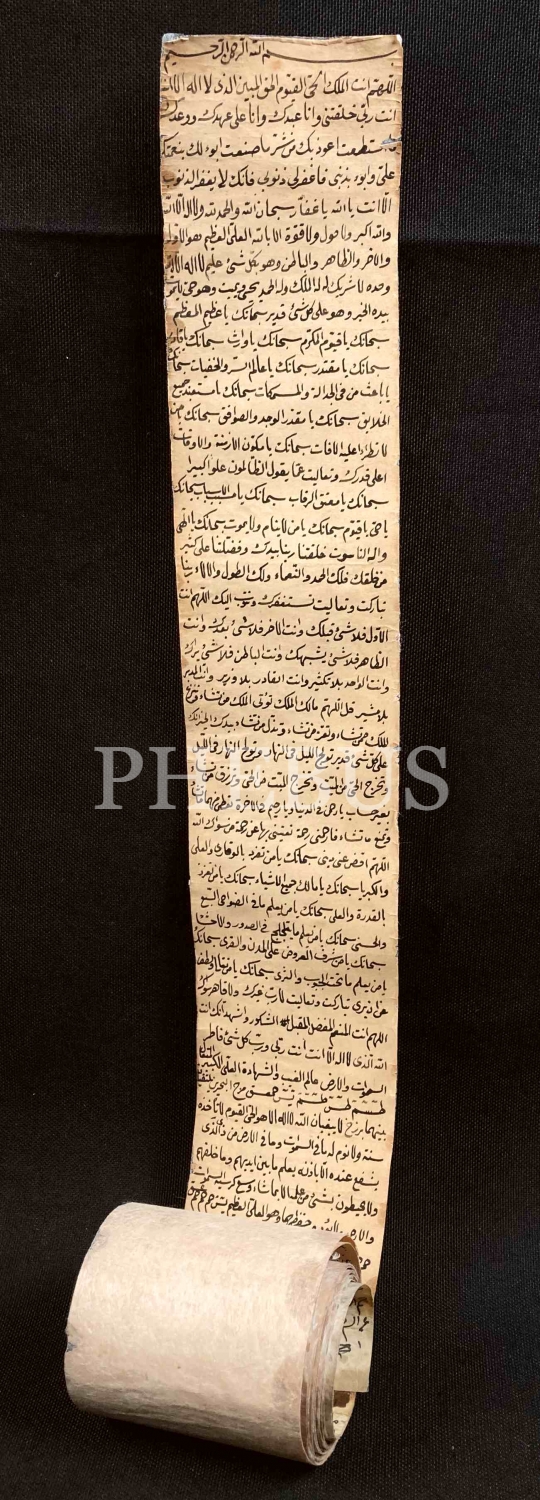 بسم الله الرحمن الرحيم
اللهم انت الملك الحي القيوم الحق المبين الذى لا اله الا انت
انت ربى خلقتنى وانا عبدك وانا على عهدك ووعدك
ما استطعت اعوذ بك من شر ما صنعت ابوء لك بنعمتك
على وابوء بذنبى فاغفرلى ذنوبى فانك لا يغفر الذنوب
الا انت يا الله يا غفار سبحان الله والحمد لله ولا اله الا الله
والله اكبر ولا حول ولا قوة الا بالله العلى العظيم هو الاول
والاخر والظاهر والباطن وهو بكل شئ عليم لا اله الا الله
وحده لا شريك له له الملك وله الحمد يحيى ويميت وهو حى لا يموت
بيده الخير وهو على كل شئ قدير سبحانك يا عظيم المعظم
سبحانك يا قيوم المكرم سبحانك يا وارث سبحانك يا قادر
سبحانك يا مقتدر سبحانك يا عالم السر والخفيات سبحانك
يا باعث من فى سبحانك
الخلايق سبحانك يا مقدر سبحانك من
لا تطرا عليه الافات سبحانك يا مكون الازمنة والاوقات
اعلى قدرك وتعاليت عما يقول الظالمون علوا كبيرا
سبحانك يا معتق الرقاب سبحانك يا مسبب الاسباب سبحانك
يا حى يا قيوم سبحانك يا من لا ينام ولا يموت سبحانك يا الهى
واله الناسوت خلقتنا ربنا بيدك وفضلتنا على كثير
من خلقك فلك الحمد والنعماء ولك الطول والالاء ربنا
تباركت وتعاليت نستغفرك ونتوب اليك اللهم انت
الاول فلا شئ قبلك وانت الاخر فلا شئ بعدك وانت
الظاهر فلا شئ يشبهك وانت الباطن فلا شئ يراك
وانت الواحد بلا تكثير وانت القادر بلا وزير وانت المدبر
بلا مشير قل اللهم مالك الملك تؤتى الملك من تشاء وتنزع
الملك ممن تشاء وتعز من تشاء وتذل من تشاء بيدك الخير انك
على كل شئ قدير تولج الليل فى النهار وتولج النهار فى الليل
وتخرج الحى من الميت وتخرج الميت من الحى وترزق من تشاء
بغير حساب يا رحمن الدنيا ورحيم الاخرة تعطى منهما من تشاء
وتمنع ما تشاء فارحمنى رحمة تغنينى بها عن رحمة من سواك الله
اللهم سبحانك يا من تفرد والعلى
والكبريا سبحانك يا مالك جميع الاشياء سبحانك يا من تعزز
بالقدرة والعلى سبحانك يا من يعلم ما فى السبع
والحسنى سبحانك يا من يعلم ما يتلجلج فى الصدور والاحشا
سبحانك يا من شرف العروض على المدن والقرى سبحانك
يا من يعلم ما تحت والثرى سبحانك
تباركت وتعاليت لا رب غيرك ولا قاهر سواك
اللهم انت المنعم المفضل الشكور واشهد انك انت
الله الذى لا اله الا انت انت ربى ورب كل شئ فاطر
السموات والارض عالم الغيب والشهادة العلى الكبير المتعال
طسم طس طسم يس حمعسق مرج البحرين يلتقيان
بينهما برزخ لا يبغيان الله لا اله الا هو الحى القيوم لا تأخذه
سنة ولا نوم له ما فى السموات وما فى الارض من ذا الذى
يشفع عنده الا باذنه يعلم ما بين ايديهم وما خلفهم
ولا يحيطون بشئ من علمه الا بما شاء وسع كرسيه السموات
والارض ولا يؤده حفظهما وهو العلى العظيم
PHEBUS